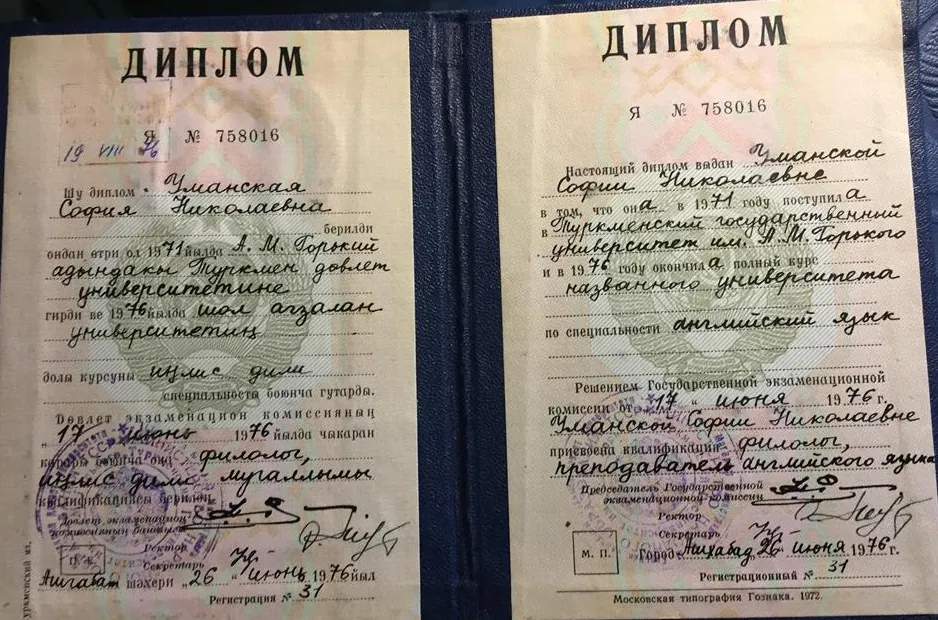 ДИПЛОМ
Я № 758016
19 VIII 76
Шу диплом Уманская
София Николаевна
берилди
ондан өтри ол 1971 йылда А. М. Горький
адындакы Түркмен довлет
университетине
гирди ве 1976 йылда шол агзалан
университетиң
долы курсуны иңлис дили
специальности боюнча гутарды.
Дөвлет экзаменацион комиссияның
„17 июнь 1976 йылда чыкаран
карары боюнча оңа филолог,
иңлис дили мугаллымы
квалификациясы берилди
Дөвлет экзаменацион
комиссияның башлыгы
Ректор
Секретарь
Ашгабат шәхери „26 “ июнь 1976 йыл
Регистрация № 31
ДИПЛОМ
Я № 758016
Настоящий диплом выдан Уманской
Софии Николаевне
в том, что она в 1971 году поступила
в Туркменский государственный
университет им. А. М. Горького
и в 1976 году окончила полный курс
названного университета
по специальности английский язык
Решением Государственной экзаменационной
комиссии от „17 “ июня 1976 г.
Уманской Софии Николаевне
присвоена квалификация филолог,
преподаватель английского языка
Председатель Государственной
экзаменационной комиссии
Ректор
Секретарь
М. П.
Город Ашхабад „26“ июня 1976 г.
Регистрационный № 31
Московская типография Гознака. 1972.